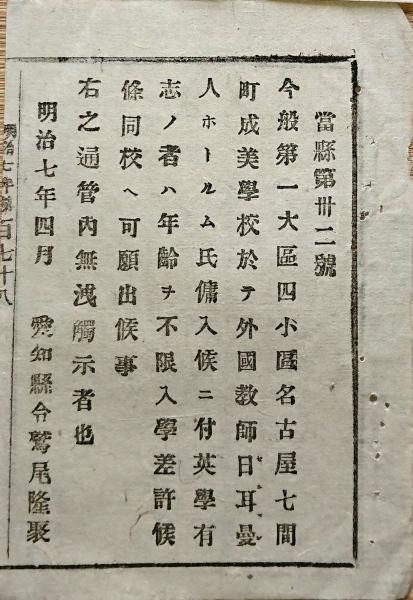 當縣第卅二號
今般第一大區四小區名古屋七間
町成美學校於テ外國教師日耳曼
人ホールム氏傭入候ニ付英學有
志ノ者ハ年齡ヲ不限入學差許候
條同校ヘ可願出候事
右之通管內無洩觸示者也
明治七年四月 愛知縣令鷲尾隆聚
明治七年 百七十八